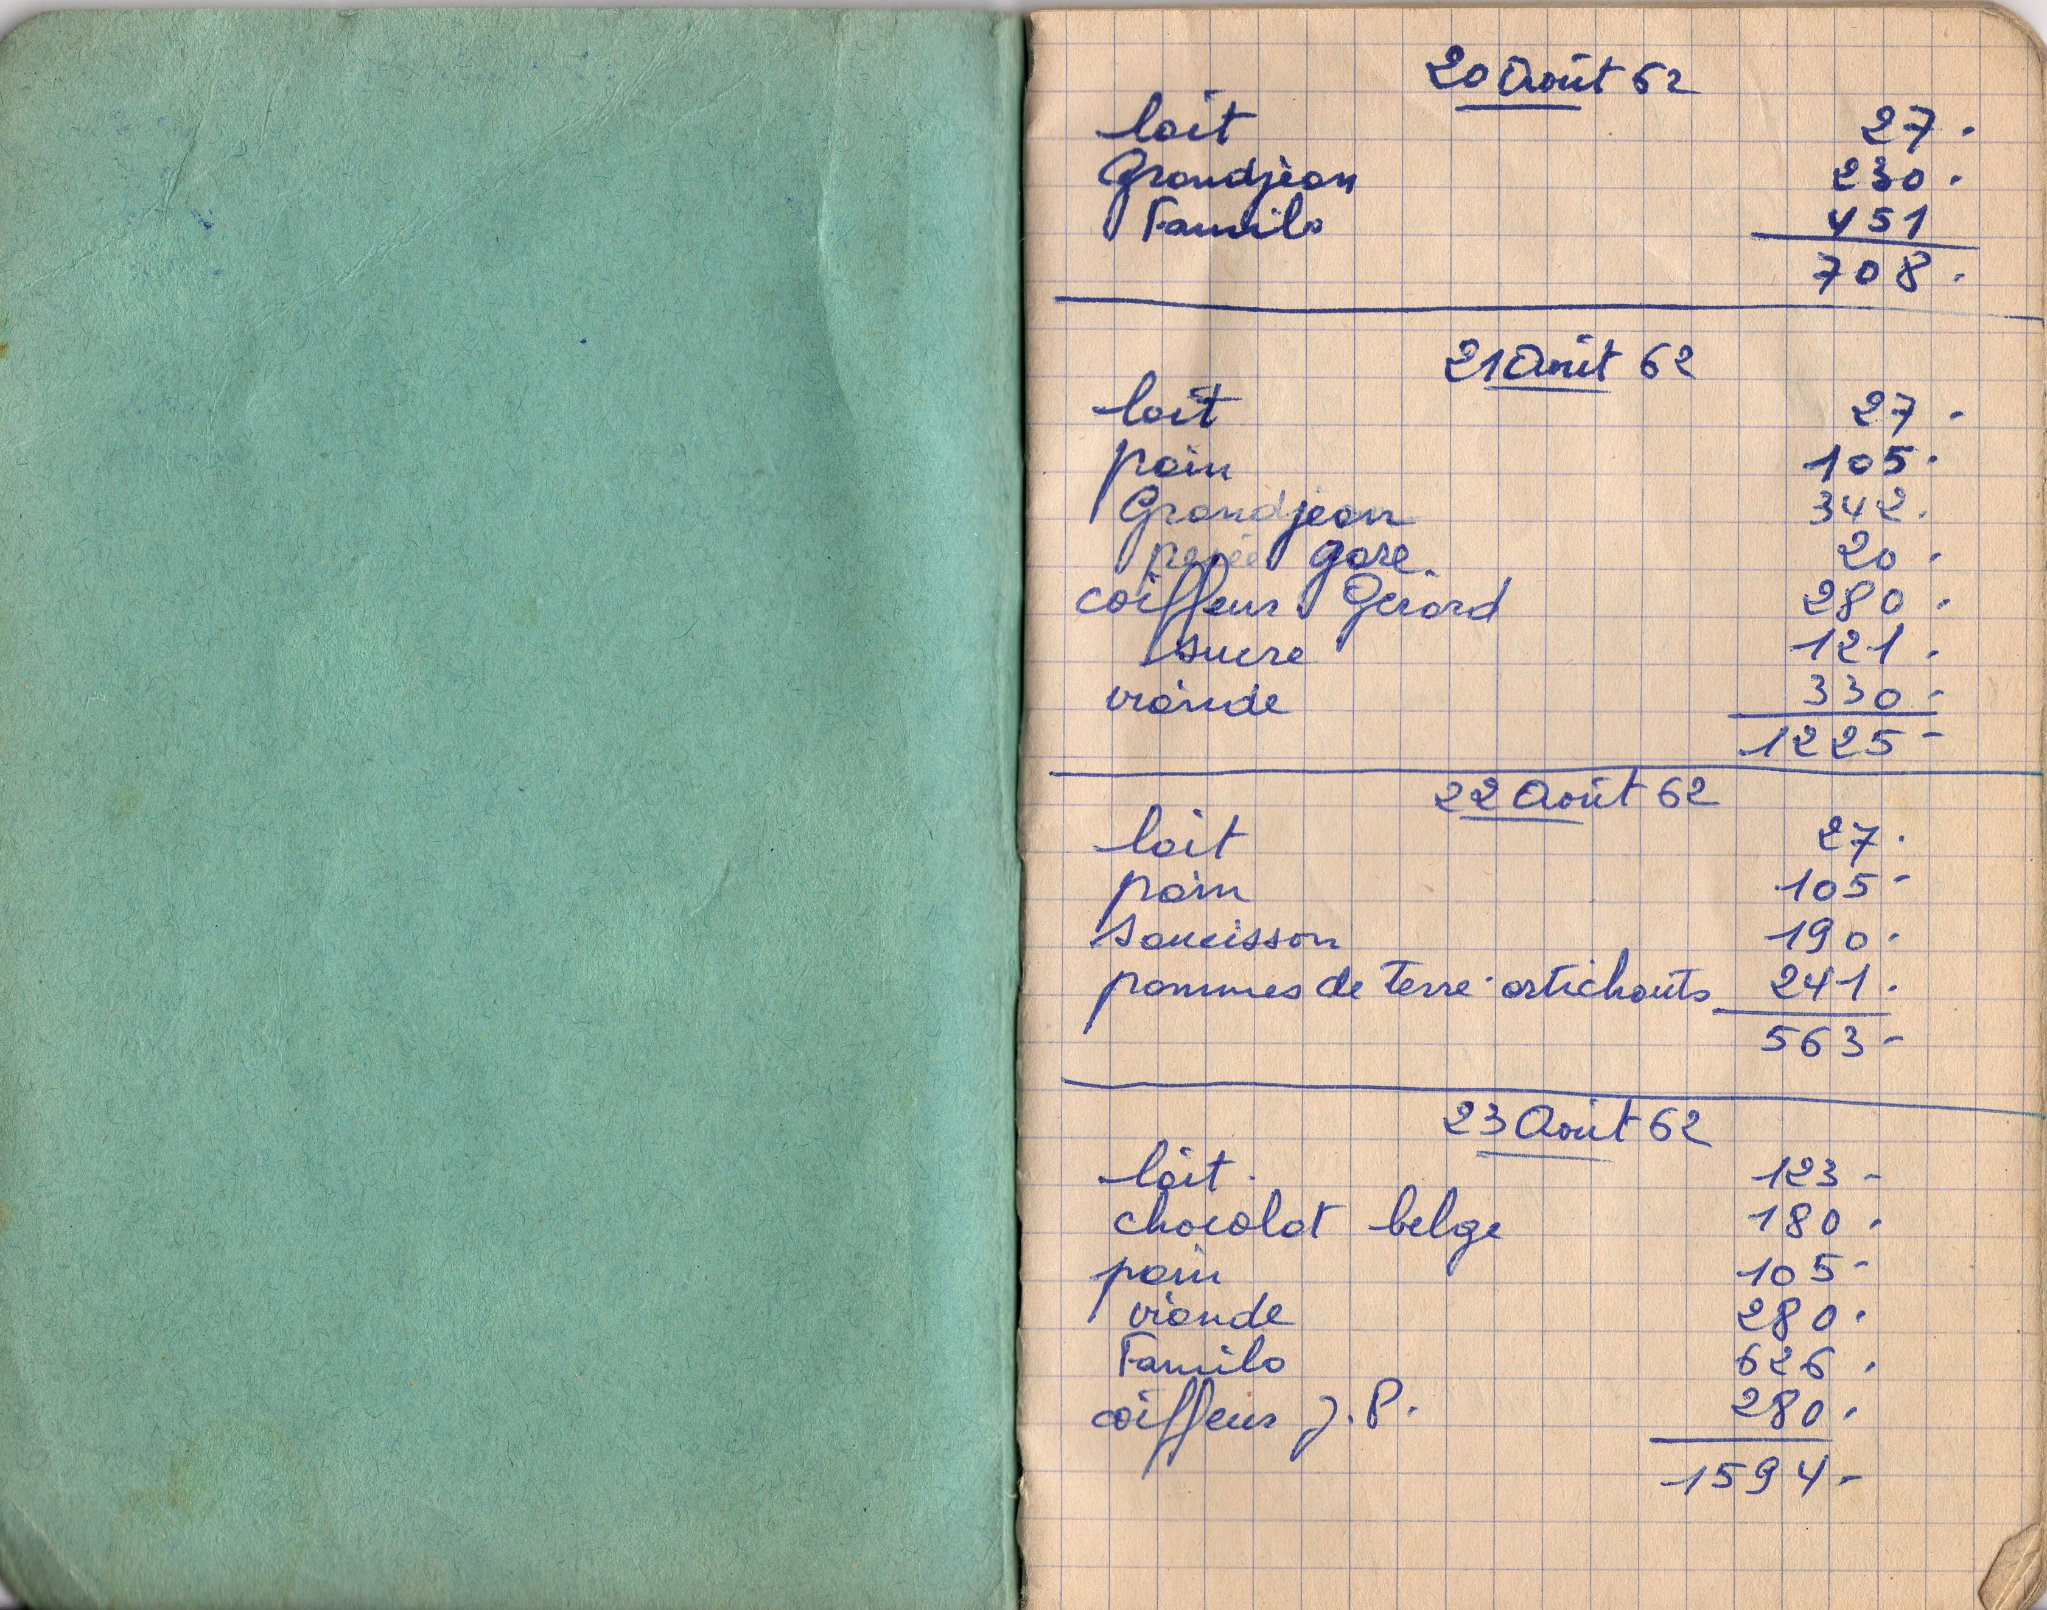 20 Août 62
lait 27.
Grandjean 230.
Familo 451
708.
21 Août 62
lait 27-
pain 105.
Grandjean 342.
pesée gare. 20.
coiffeur Gérard 280.
sucre 121.
viande 330-
1225-
22 Août 62
lait 27.
pain 105-
saucisson 190.
pommes de terre. artichauts 241.
563-
23 Août 62
lait. 123-
chocolat belge 180.
pain 105-
viande 280.
Familo 626.
coiffeur J.P. 280.
1594-